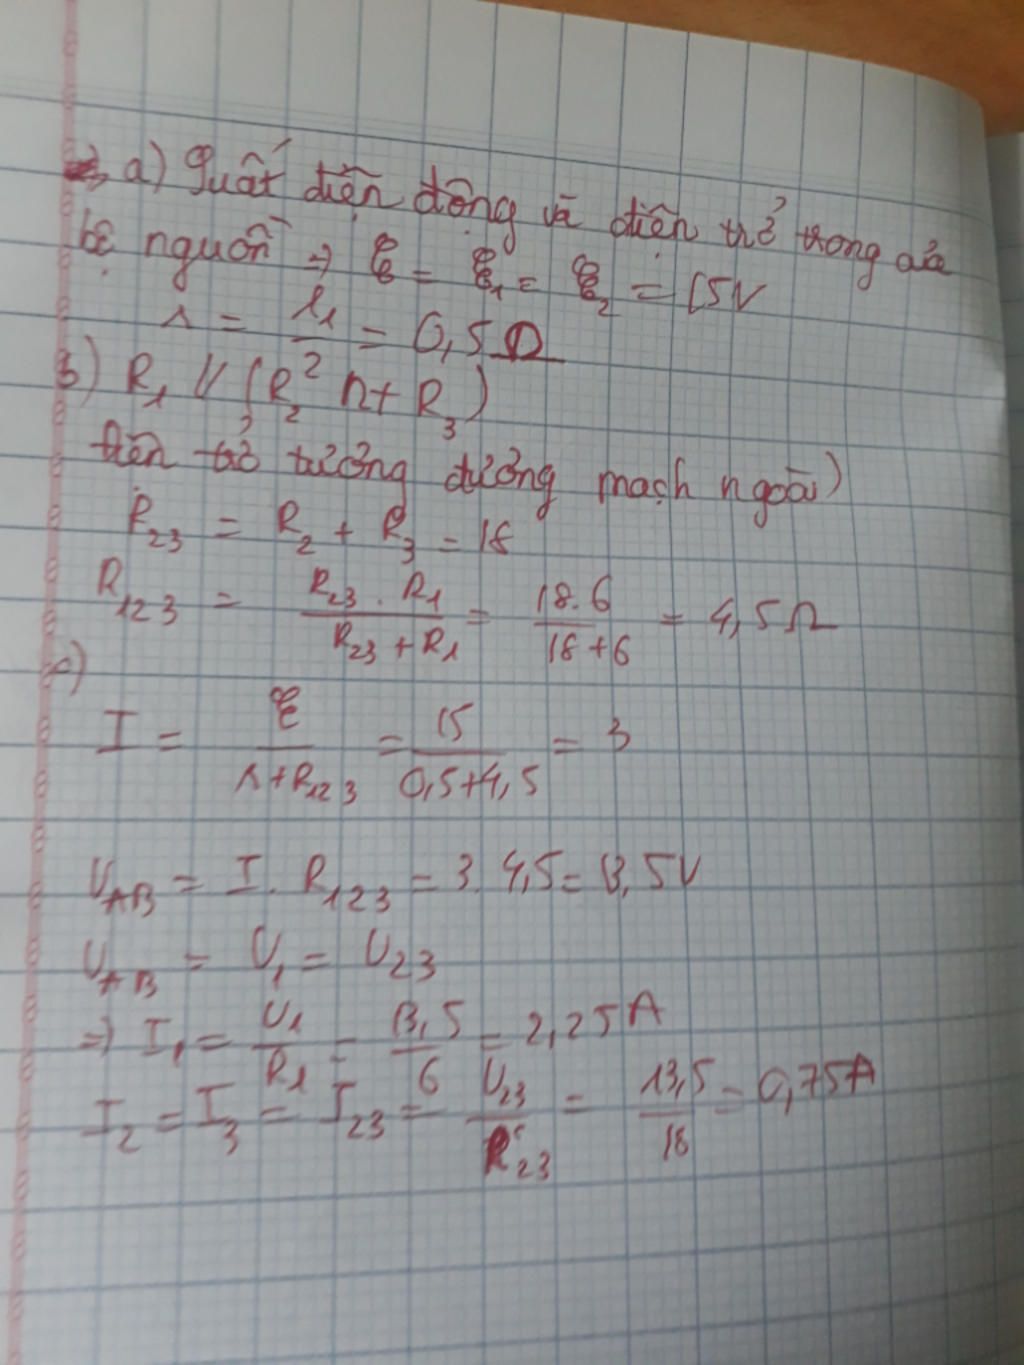 a) Suất điện động và điện trở trong của
bộ nguồn ⇒ ℰ = ℰ₁ = ℰ₂ = 15V
r = r₁/2 = 0,5Ω
b) R₁ // (R₂ nt R₃)
Điện trở tương đương mạch ngoài)
R₂₃ = R₂ + R₃ = 18
R₁₂₃ = (R₂₃ . R₁)/(R₂₃ + R₁) = (18.6)/(18+6) = 4,5Ω
c)
I = ℰ/(r+R₁₂₃) = 15/(0,5+4,5) = 3
U_AB = I . R₁₂₃ = 3. 4,5 = 13,5V
U_AB = U₁ = U₂₃
⇒ I₁ = U₁/R₁ = 13,5/6 = 2,25A
I₂ = I₃ = I₂₃ = U₂₃/R₂₃ = 13,5/18 = 0,75A